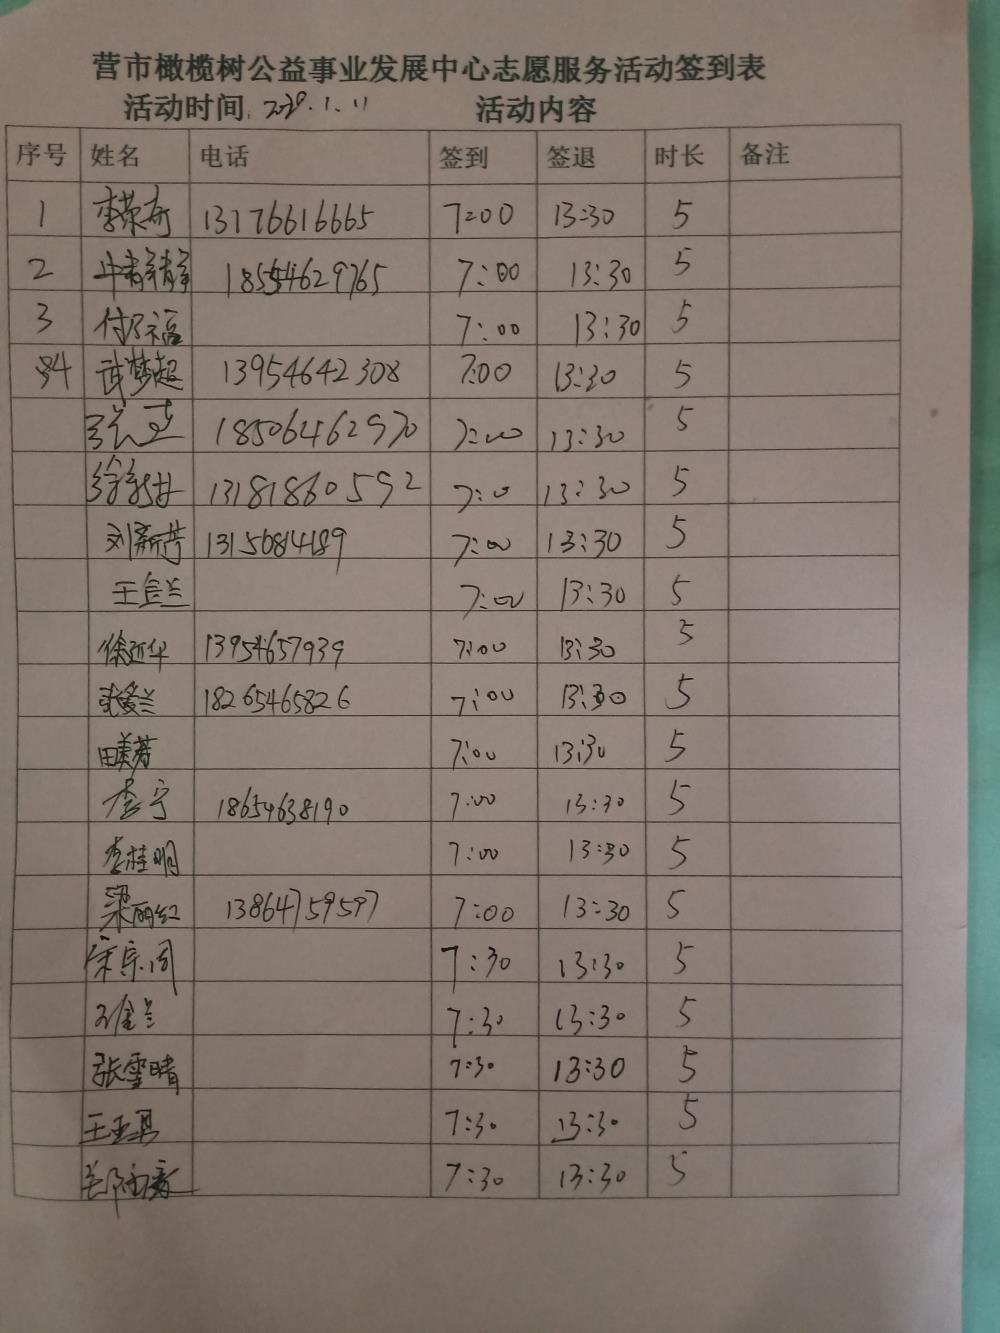 营市橄榄树公益事业发展中心志愿服务活动签到表
活动时间: 1.11 活动内容
序号 姓名 电话 签到 签退 时长 备注
1 李荣奇 13176616665 7:00 13:30 5
2 18554629765 7:00 13:30 5
3 7:00 13:30 5
4 武梦超 13954642308 7:00 13:30 5
18506462970 7:00 13:30 5
13181860592 7:0 13:30 5
刘新芳 1315084189 7:00 13:30 5
王金兰 7:00 13:30 5
徐延华 13954657939 7:00 13:30 5
张爱兰 18265465826 7:00 13:30 5
田美芳 7:00 13:30 5
李宁 18654638190 7:00 13:30 5
李桂明 7:00 13:30 5
梁丽红 13864759597 7:00 13:30 5
7:30 13:30 5
7:30 13:30 5
张雪晴 7:30 13:30 5
7:30 13:30 5
7:30 13:30 5